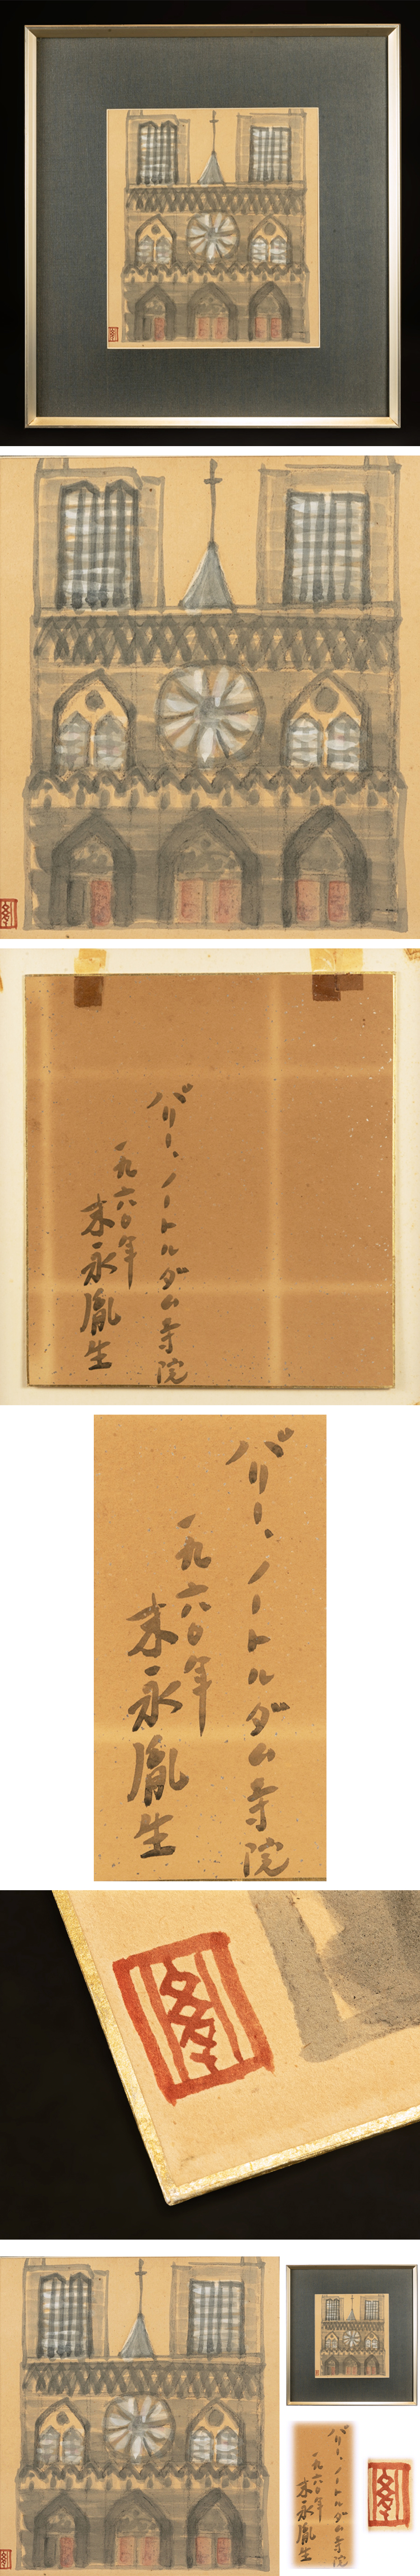 パリー、ノートルダム寺院
一九六〇年
末永胤生
パリー、ノートルダム寺院
一九六〇年
末永胤生
パリー、ノートルダム寺院
一九六〇年
末永胤生